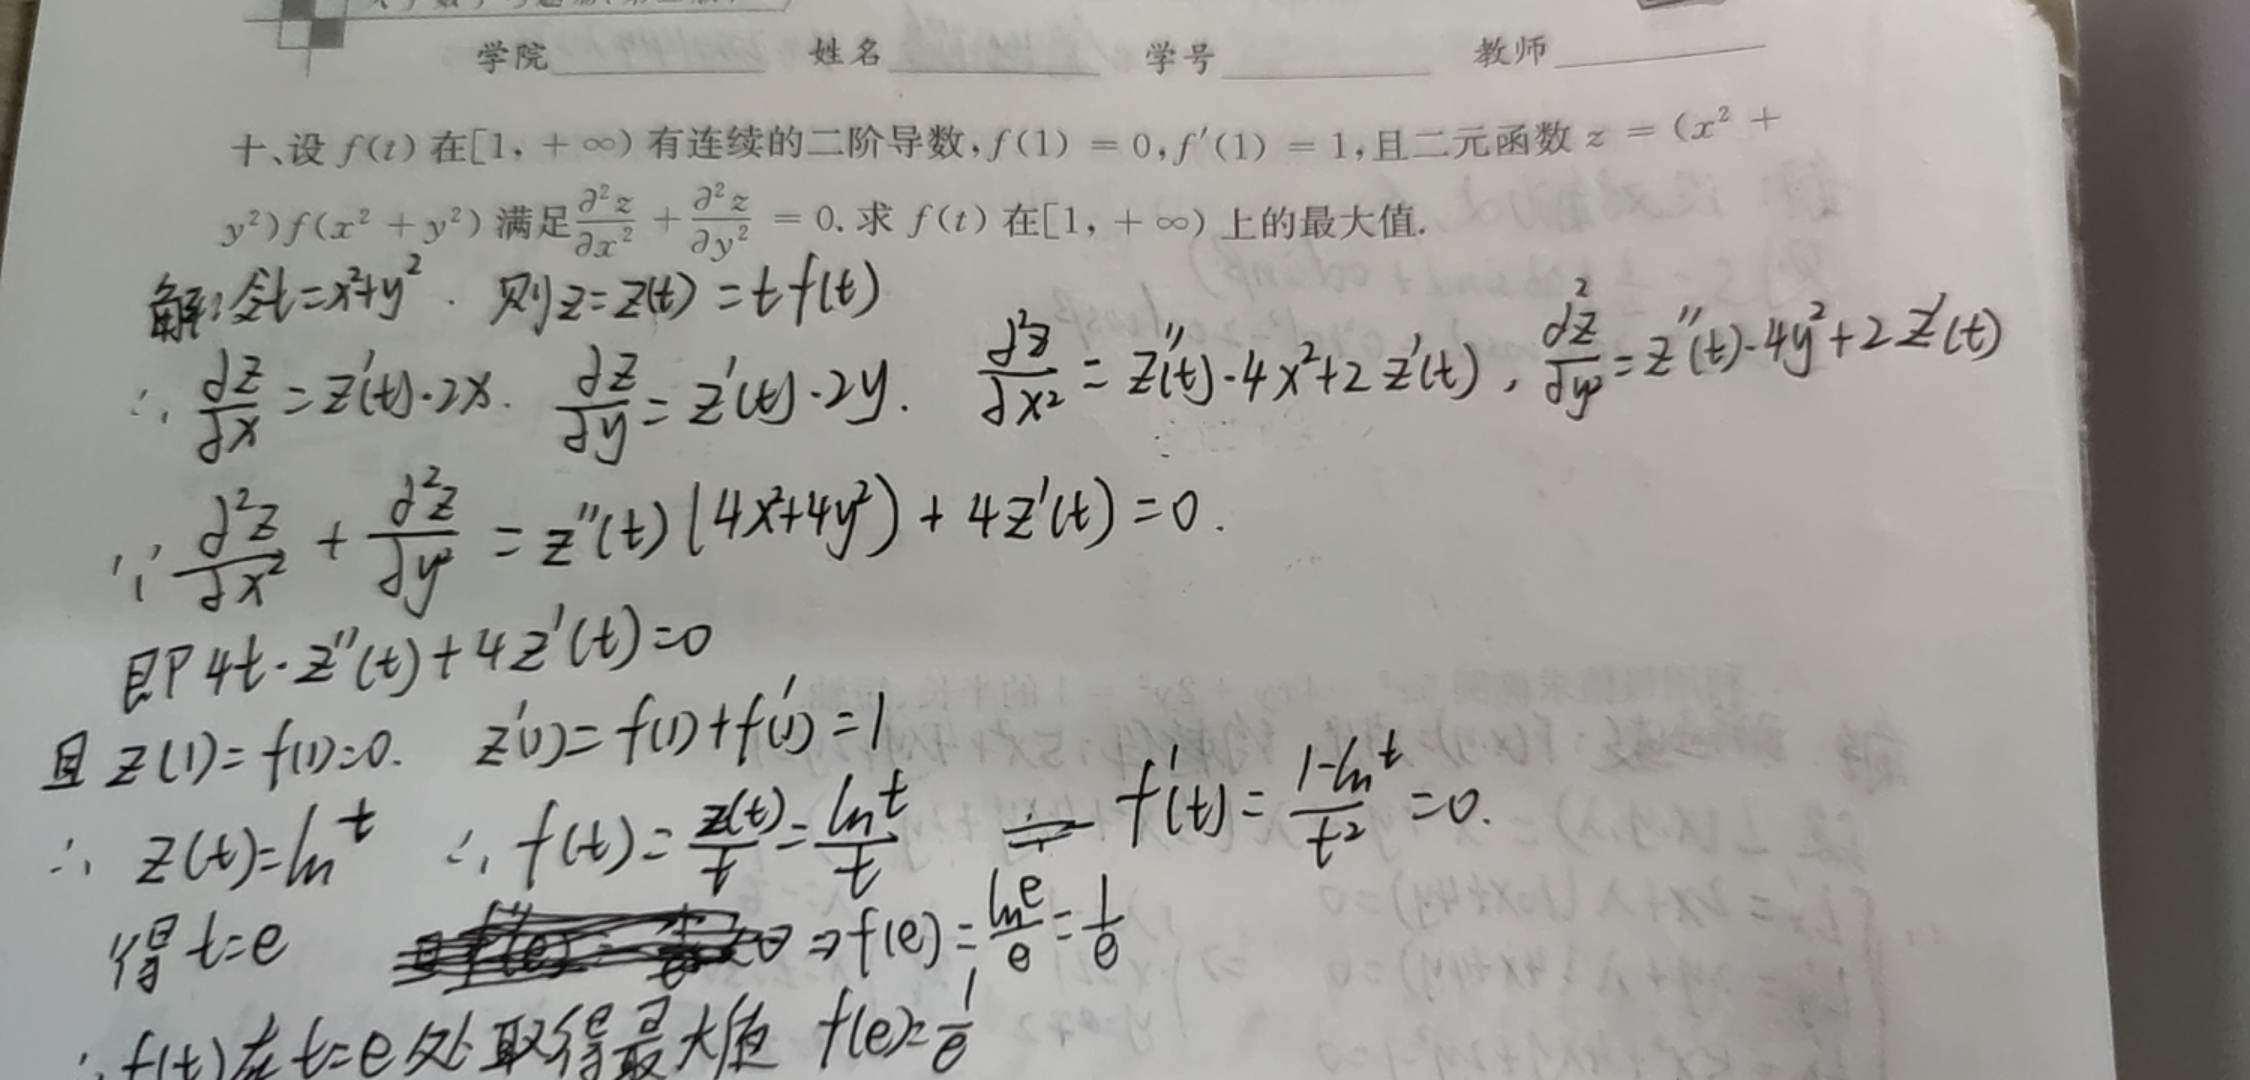 学院 姓名 学号 教师
十、设 f(t) 在[1, +∞) 有连续的二阶导数, f(1) = 0, f′(1) = 1, 且二元函数 z = (x² +
y²)f(x² + y²) 满足 ∂²z/∂x² + ∂²z/∂y² = 0. 求 f(t) 在[1, +∞) 上的最大值.
解: 令t=x²+y². 则z=z(t)=tf(t)
∴ ∂z/∂x = z′(t)·2x. ∂z/∂y = z′(t)·2y. ∂²z/∂x² = z″(t)·4x²+2z′(t), ∂²z/∂y² = z″(t)·4y²+2z′(t)
∵ ∂²z/∂x² + ∂²z/∂y² = z″(t)(4x²+4y²) + 4z′(t) = 0.
即 4t·z″(t)+4z′(t)=0
且 z(1)=f(1)=0. z′(1)=f(1)+f′(1)=1
∴ z(t)=ln t ∴ f(t)= z(t)/t = ln t/t f′(t)= (1-ln t)/t² =0.
得 t=e ⇒ f(e)= ln e/e = 1/e
∴ f(t)在t=e处取得最大值 f(e)=1/e